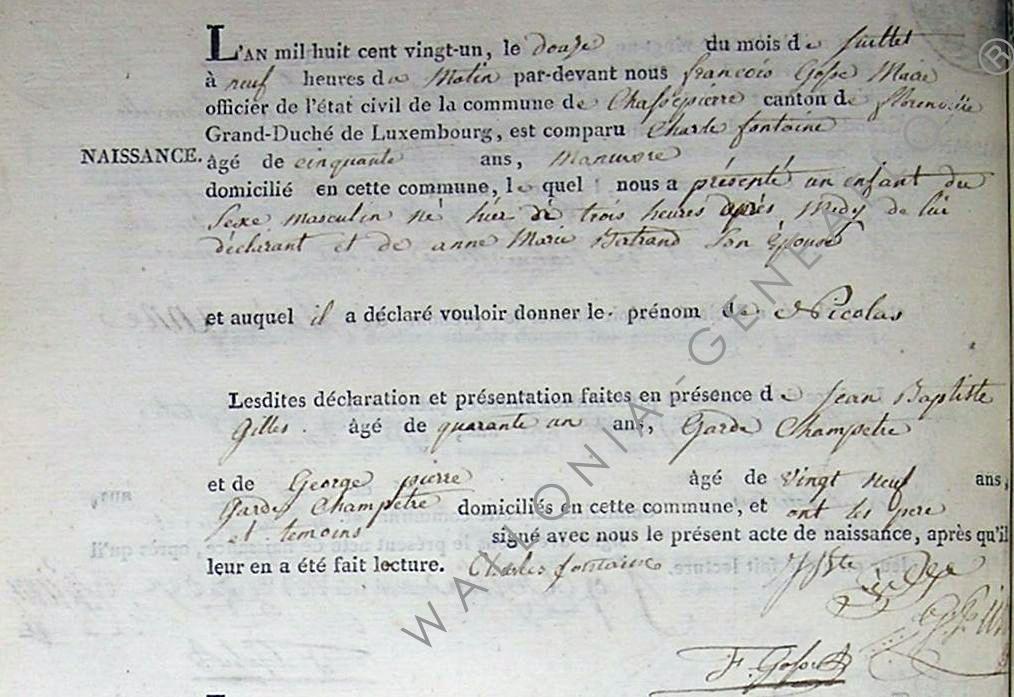 L'AN mil huit cent vingt-un, le douze du mois de Juillet
à neuf heures du Matin par-devant nous françois Gosse Maire
officier de l'état civil de la commune de Chassepierre canton de florenville
Grand-Duché de Luxembourg, est comparu Charle fontaine
NAISSANCE. âgé de cinquante ans, Manuvre
domicilié en cette commune, le quel nous a présenté un enfant du
Sexe masculin né hier à trois heures après Midy de lui
déclarant et de anne Marie Bertrand Son Epouse
et auquel il a déclaré vouloir donner le prénom de Nicolas
Lesdites déclaration et présentation faites en présence de Jean Baptiste
Gilles. âgé de quarante un ans, Garde Champetre
et de George pierre âgé de vingt neuf ans,
Garde Champetre domiciliés en cette commune, et ont les pere
et temoins signé avec nous le présent acte de naissance, après qu'il
leur en a été fait lecture. Charles fontaine
F. Gosse
WALLONIA-GENEA
®